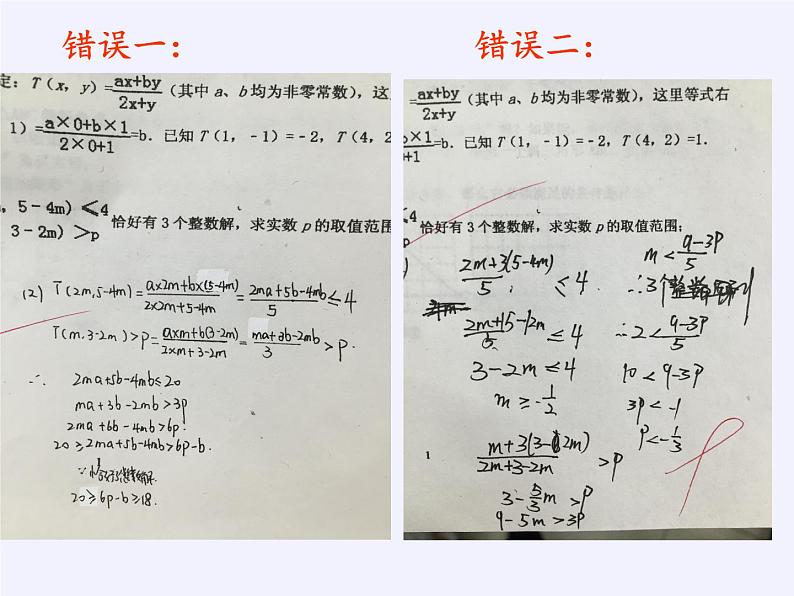 错误一：
定：T（x，y）=ax+by/2x+y（其中 a、b 均为非零常数），这
1）=a×0+b×1/2×0+1=b．已知 T（1，﹣1）=﹣2，T（4，2
，5﹣4m）≤4
3﹣2m）>p
恰好有 3 个整数解，求实数 p 的取值范围
(2) T(2m,5-4m)=ax2m+bx(5-4m)/2x2m+5-4m=2ma+5b-4mb/5≤4
T(m,3-2m)>p=axm+b(3-2m)/2xm+3-2m=ma+3b-2mb/3>p.
∴ 2ma+5b-4mb≤20
ma+3b-2mb>3p
2ma+6b-4mb>6p.
20≥2ma+5b-4mb>6p-b.
20≥6p-b≥18.
错误二：
=ax+by/2x+y（其中 a、b 均为非零常数），这里等式右
b×1/0+1=b．已知 T（1，﹣1）=﹣2，T（4，2）=1．
≤4
>p
恰好有 3 个整数解，求实数 p 的取值范围；
2m+3(5-4m)/5≤4
2m+15-12m/5≤4
3-2m≤4
m≥-1/2
1
m+3(3-2m)/2m+3-2m>p
3-5/3m>p
9-5m>3p
m<9-3p/5
∴3个整数
∴2<9-3p/5
10<9-3p
3p<-1
p<-1/3